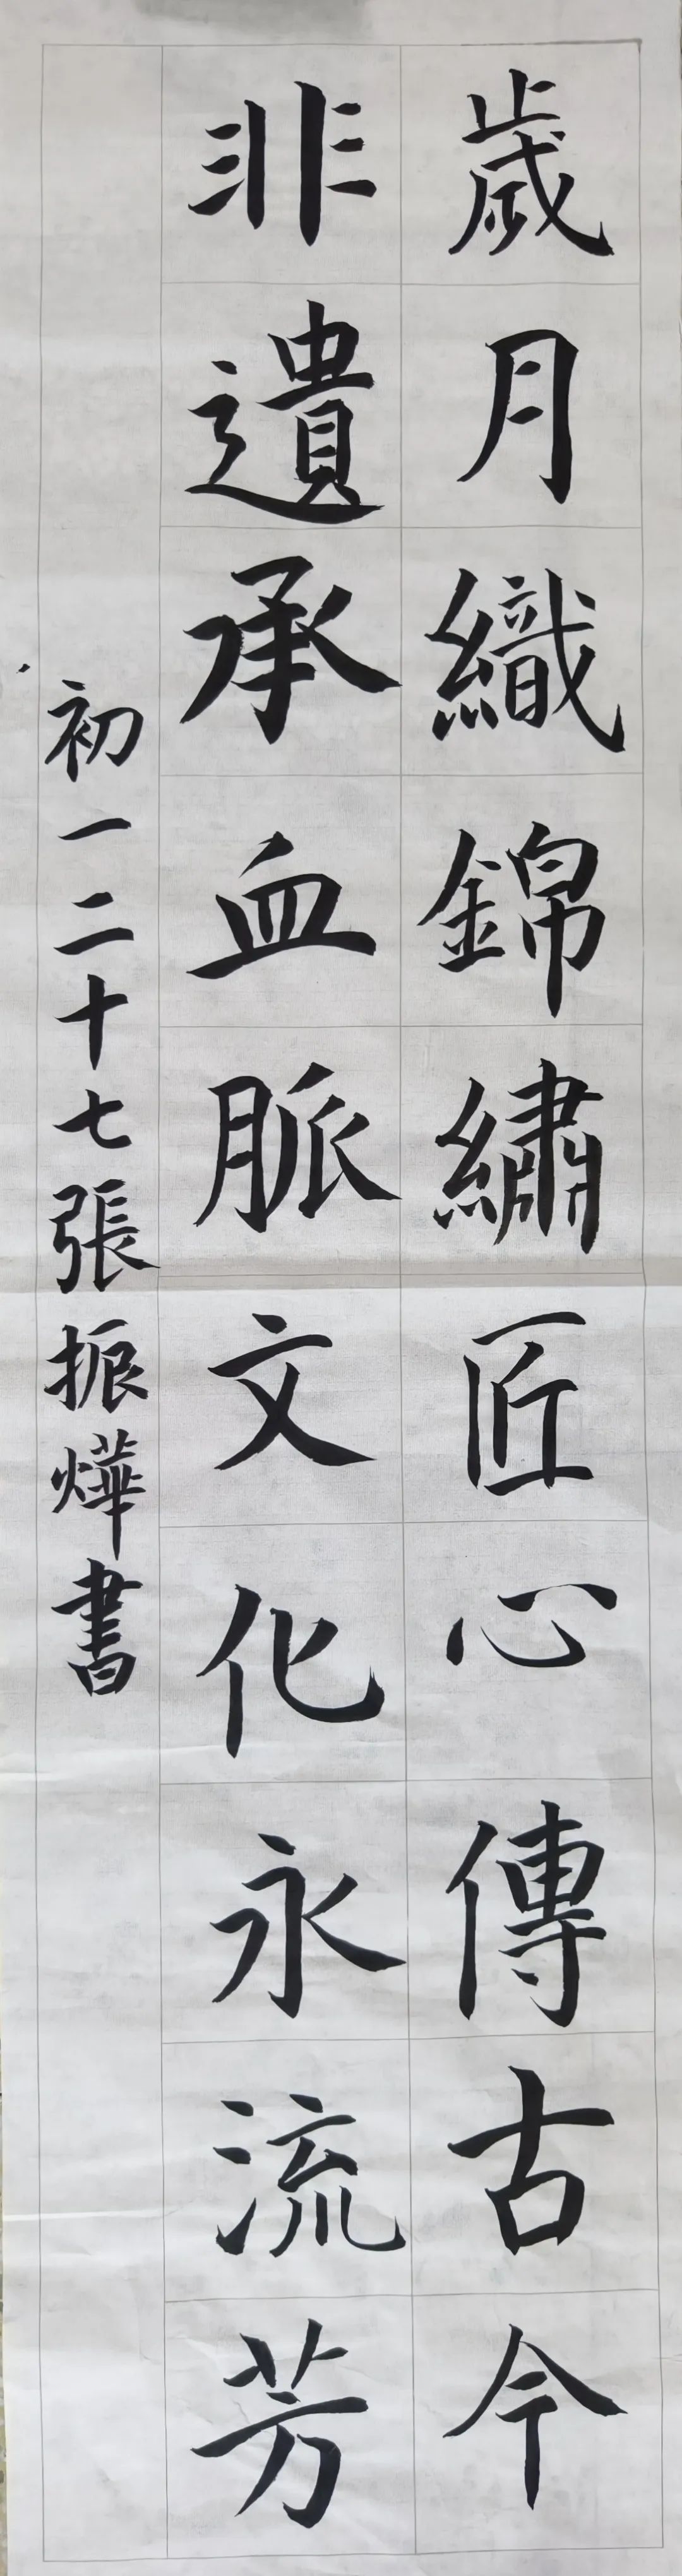 歲月織錦繡匠心傳古今
非遺承血脈文化永流芳
初一二十七張振燁書